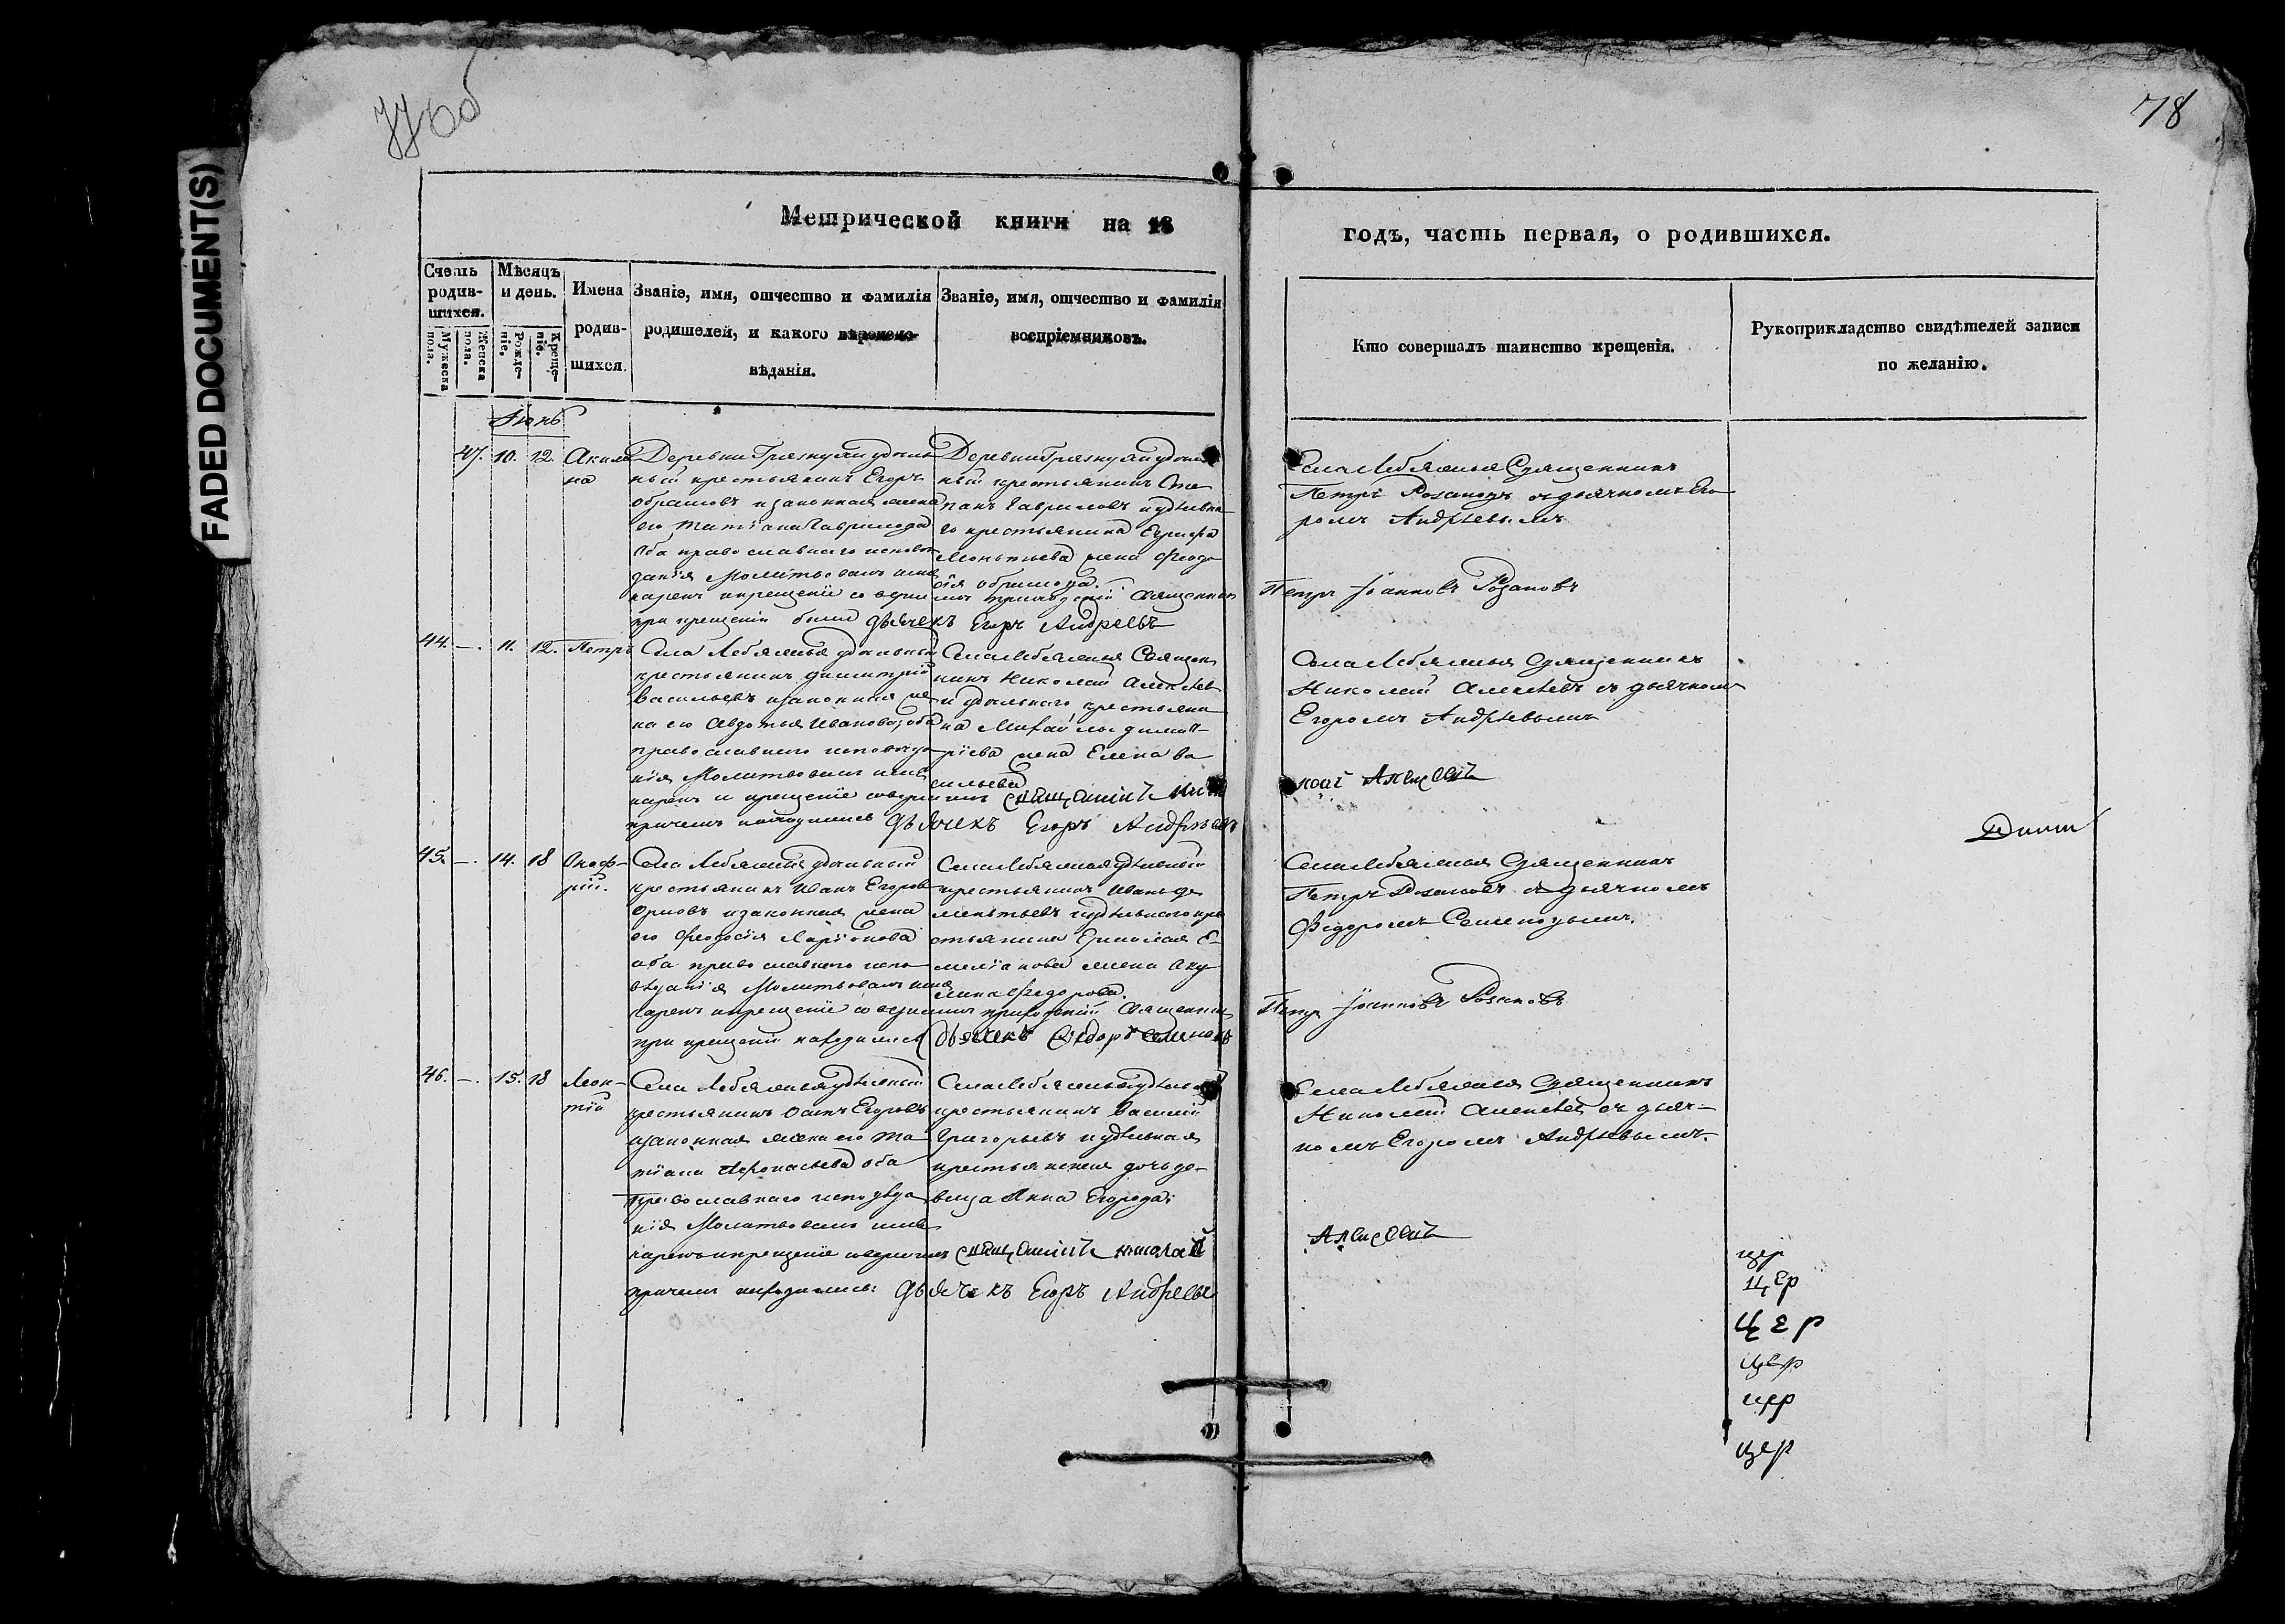 FADED DOCUMENT(S)
77об
78
Метрической книги на 18
годъ, часть первая, о родившихся.
Счетъ родив-шихся.
Мужеска пола.
Женска пола.
Мѣсяцъ и день.
Рожде-ніе.
Креще-ніе.
Имена родив-шихся.
Званіе, имя, отчество и фамилія
родителей, и какого вѣроиспо-
вѣданія.
Званіе, имя, отчество и фамилія
воспріемниковъ.
Кто совершалъ таинство крещенія.
Рукоприкладство свидѣтелей записи
по желанію.
Іюнь
47. 10. 12. Акили
на
Деревни Грязнухи удѣль
ный крестьянинъ Егоръ
и законная жена
его Татіана Гаврилова
оба православнаго исповѣ
данія Молитвовалъ име
нарекъ и крещеніе совер
при крещеніи были дьячекъ Егоръ Андреевъ
Деревни Грязнухи удѣль
ный крестьянинъ Сте
панъ Гавриловъ и удѣльна
го крестьянина
жена Феодо
сія
приходскій Священникъ
Села Лебяжья Священникъ
Петръ Розановъ съ дьячкомъ Его
ромъ Андреевымъ
Петръ Іоанновъ Розановъ
44. —. 11. 12. Петръ
Села Лебяжья удѣльный
крестьянинъ Димитрій
Васильевъ и законная же
на его Авдотья Иванова, оба
православнаго исповѣда
нія Молитвовалъ име
нарекъ и крещеніе совер
причемъ находились дьячекъ Егоръ Андреевъ
Села Лебяжья Священ
никъ Николай Алексѣев
и удѣльнаго крестьяни
на Михайлы Димит-
ріева жена Елена Ва
сильева
священникъ Нико
Села Лебяжья Священникъ
Николай Алексѣевъ съ дьячкомъ
Егоромъ Андреевымъ
лай Алексеевъ
45. —. 14. 18 Оноф-
рій.
Села Лебяжья удѣльный
крестьянинъ Иванъ Егоров
и законная жена
его Феодосія Ларіонова
оба православнаго испо
вѣданія Молитвовалъ име
нарекъ и крещеніе совер
при крещеніи находился дьячекъ Федоръ Семеновъ
Села Лебяжья удѣльный
крестьянинъ Иванъ Де
ментьевъ и удѣльнаго кре
стьянина Ермолая Е-
меліанова жена Аку
лина Федорова.
приходскій Священникъ
Села Лебяжья Священникъ
Петръ Розановъ съ дьячкомъ
Федоромъ Семеновымъ.
Петръ Іоанновъ Розановъ
46. —. 15. 18 Леон-
тій
Села Лебяжья удѣльный
крестьянинъ Осипъ Егоровъ
и законная жена его Та
тіана Афонасьева оба
Православнаго исповѣда
нія Молитвовалъ име
нарекъ и крещеніе совер
причемъ находились: дьячекъ Егоръ Андреевъ
Села Лебяжья удѣльный
крестьянинъ Василій
Григорьевъ и удѣльная
крестьянская дочь дѣ-
вица Анна Егорова:
священникъ Николай
Села Лебяжья Священникъ
Николай Алексѣев съ дьяч-
комъ Егоромъ Андреевымъ.
Алексеевъ
цер
цер
цер
цер
цер
цер